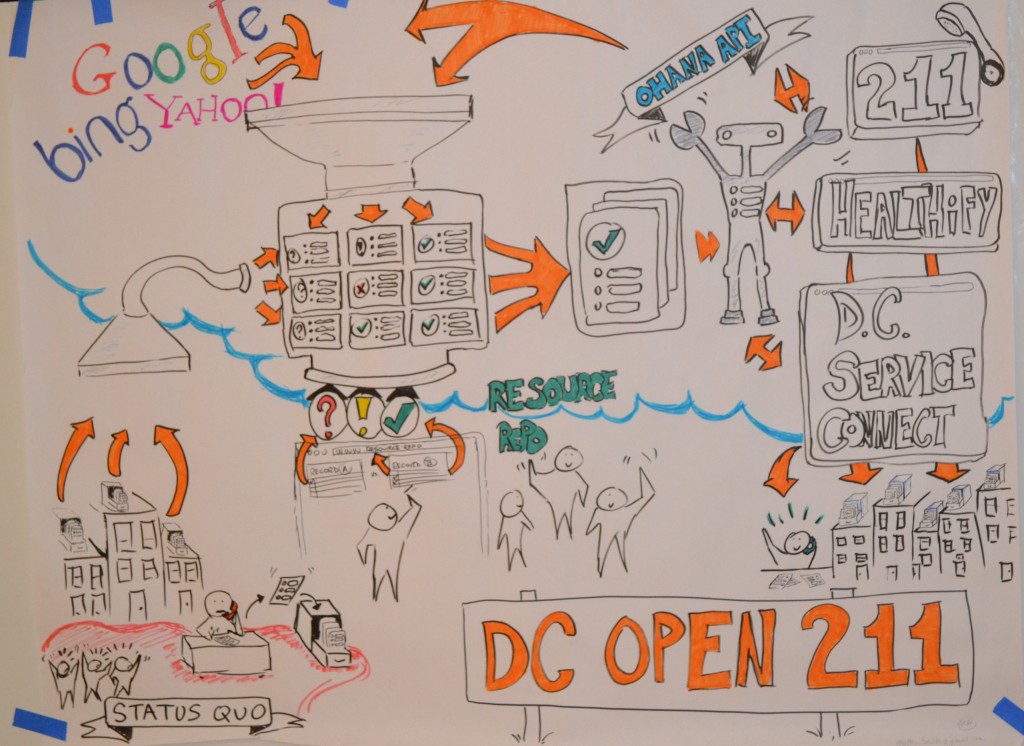 GooglE
bing YAHOO!
OHANA API
211
HEALTHIFY
D.C.
SERVICE
CONNECT
RESOURCE
REPO
? ! ✓
STATUS QUO
DC OPEN 211